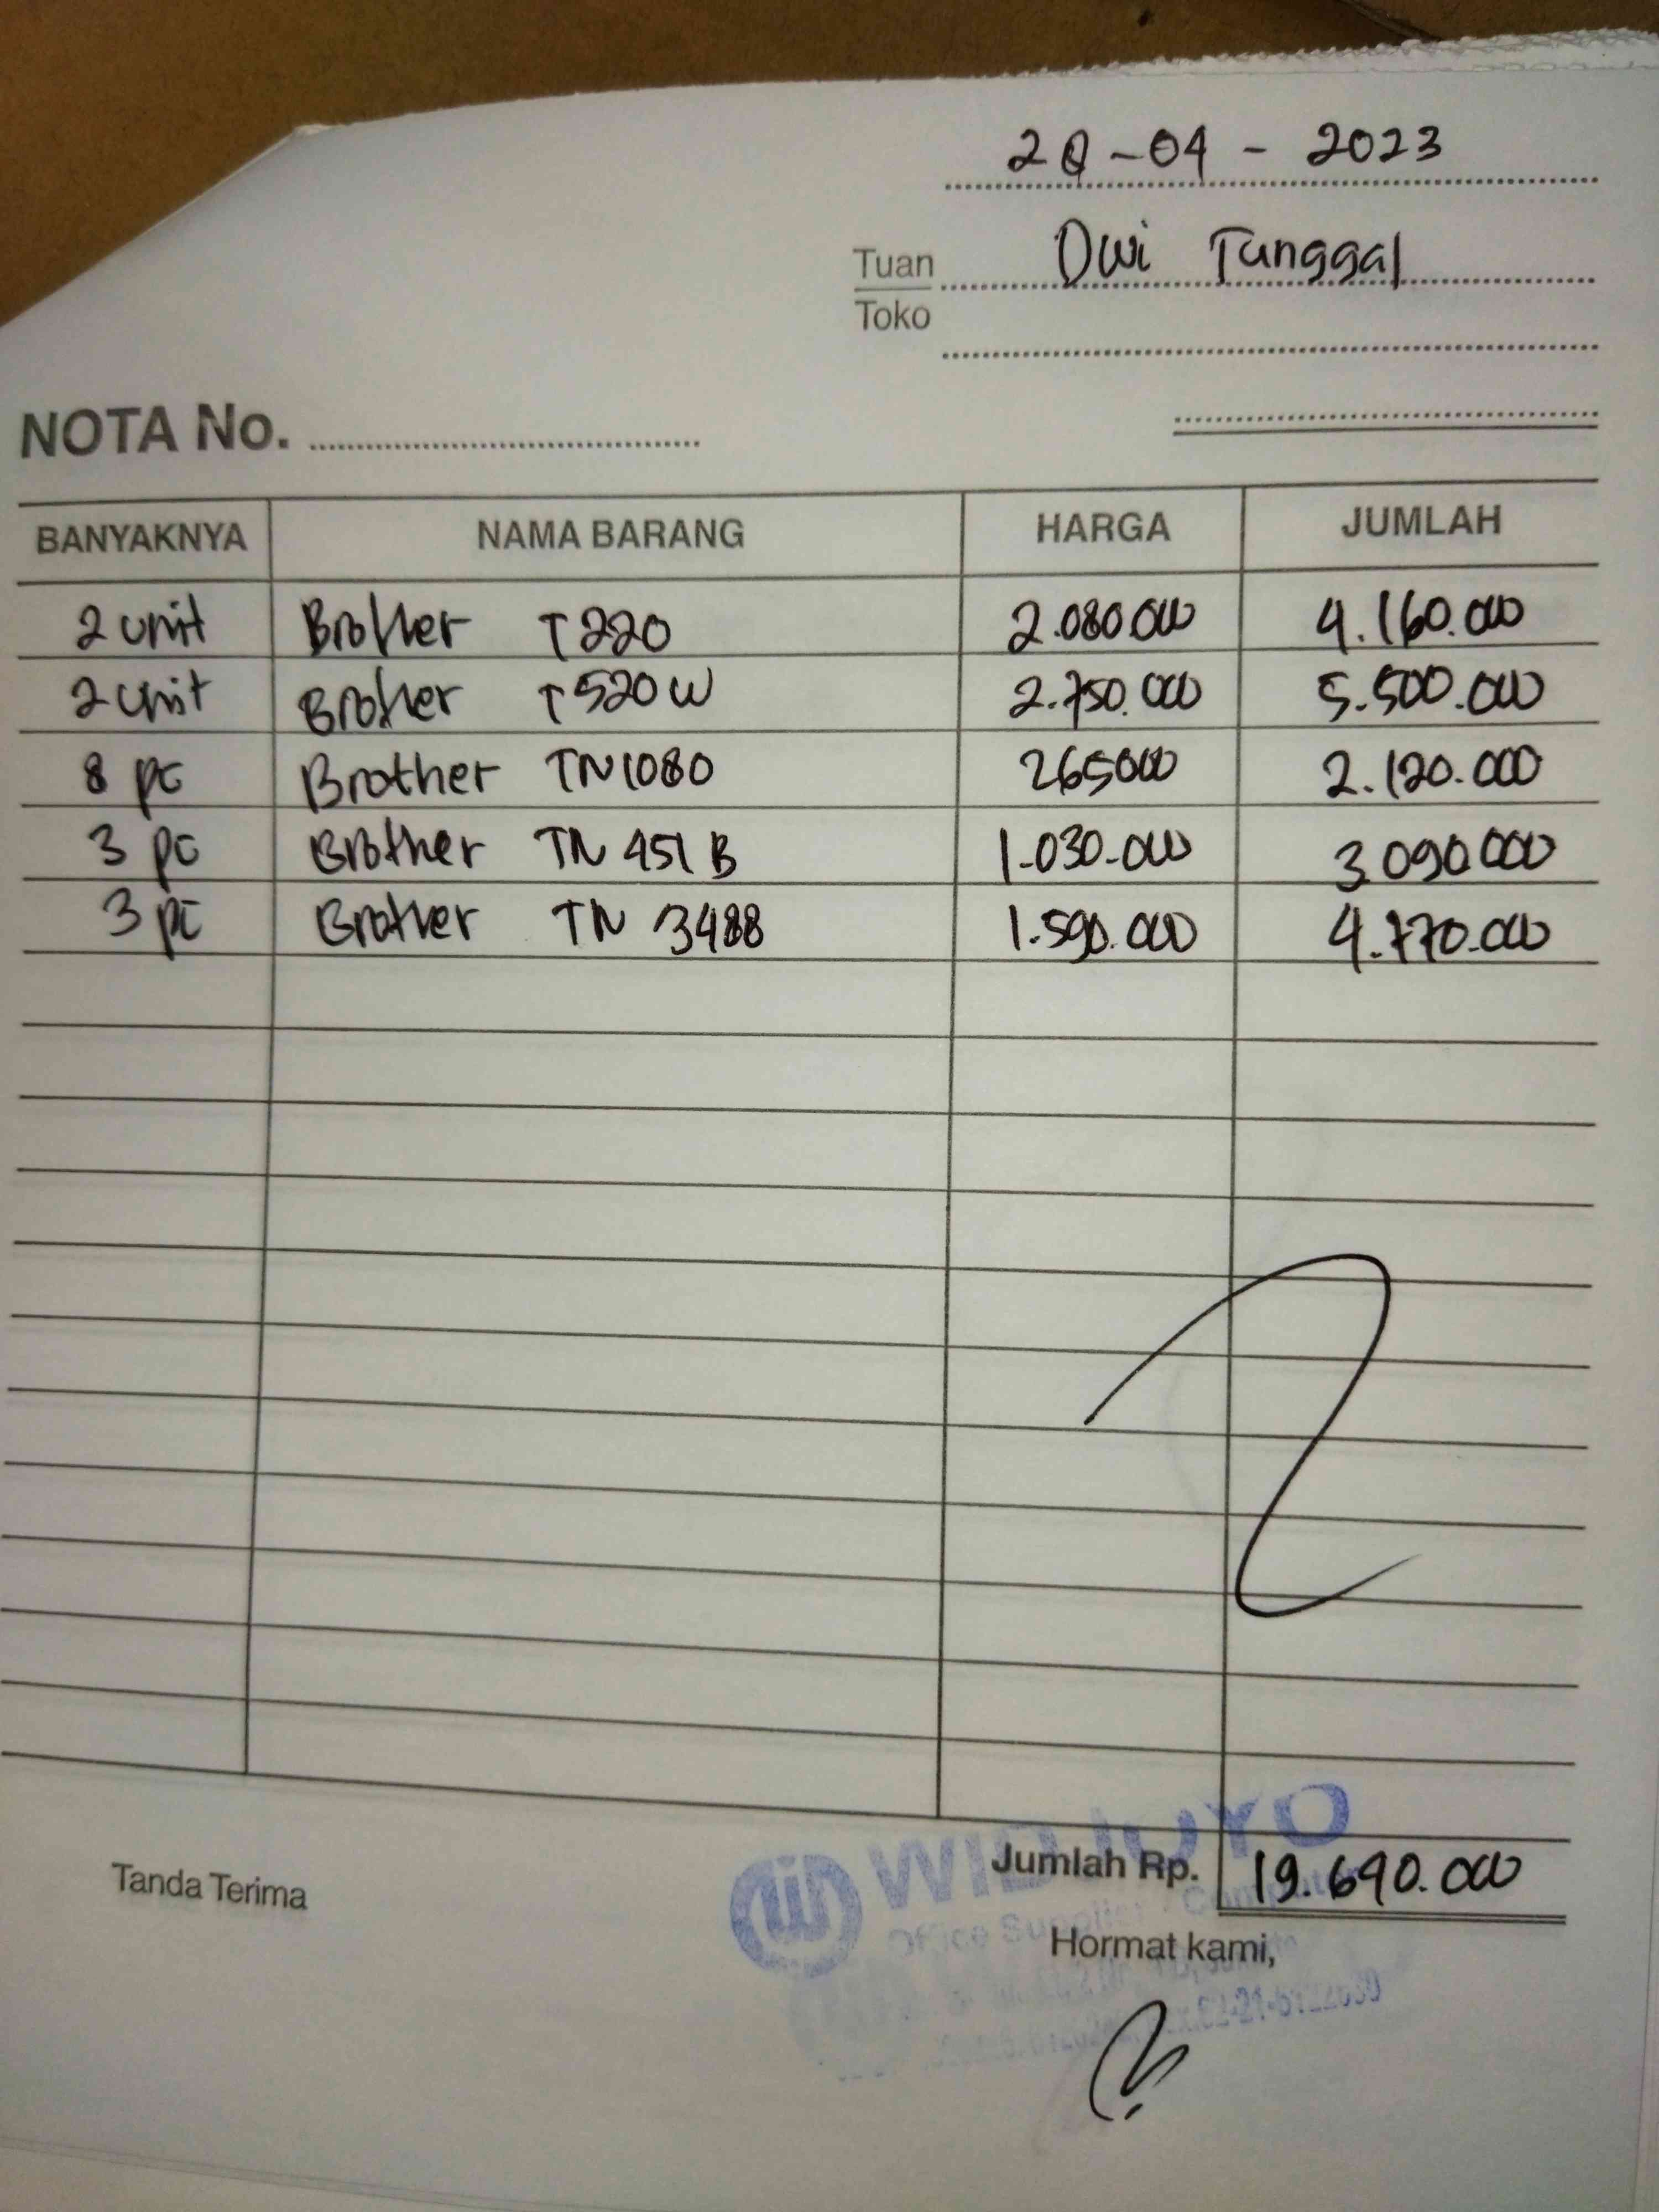 20-04-2023
Tuan Dwi Tunggal
Toko
NOTA No.
BANYAKNYA NAMA BARANG HARGA JUMLAH
2 unit Brother T220 2.080.000 4.160.000
2 unit Brother T520W 2.750.000 5.500.000
8 pc Brother TN1080 265000 2.120.000
3 pc Brother TN 451 B 1.030.000 3.090.000
3 pc Brother TN 3488 1.590.000 4.770.000
WIDJOYO
Jumlah Rp. 19.640.000
Tanda Terima
Office Supplier - Computer
Hormat kami,